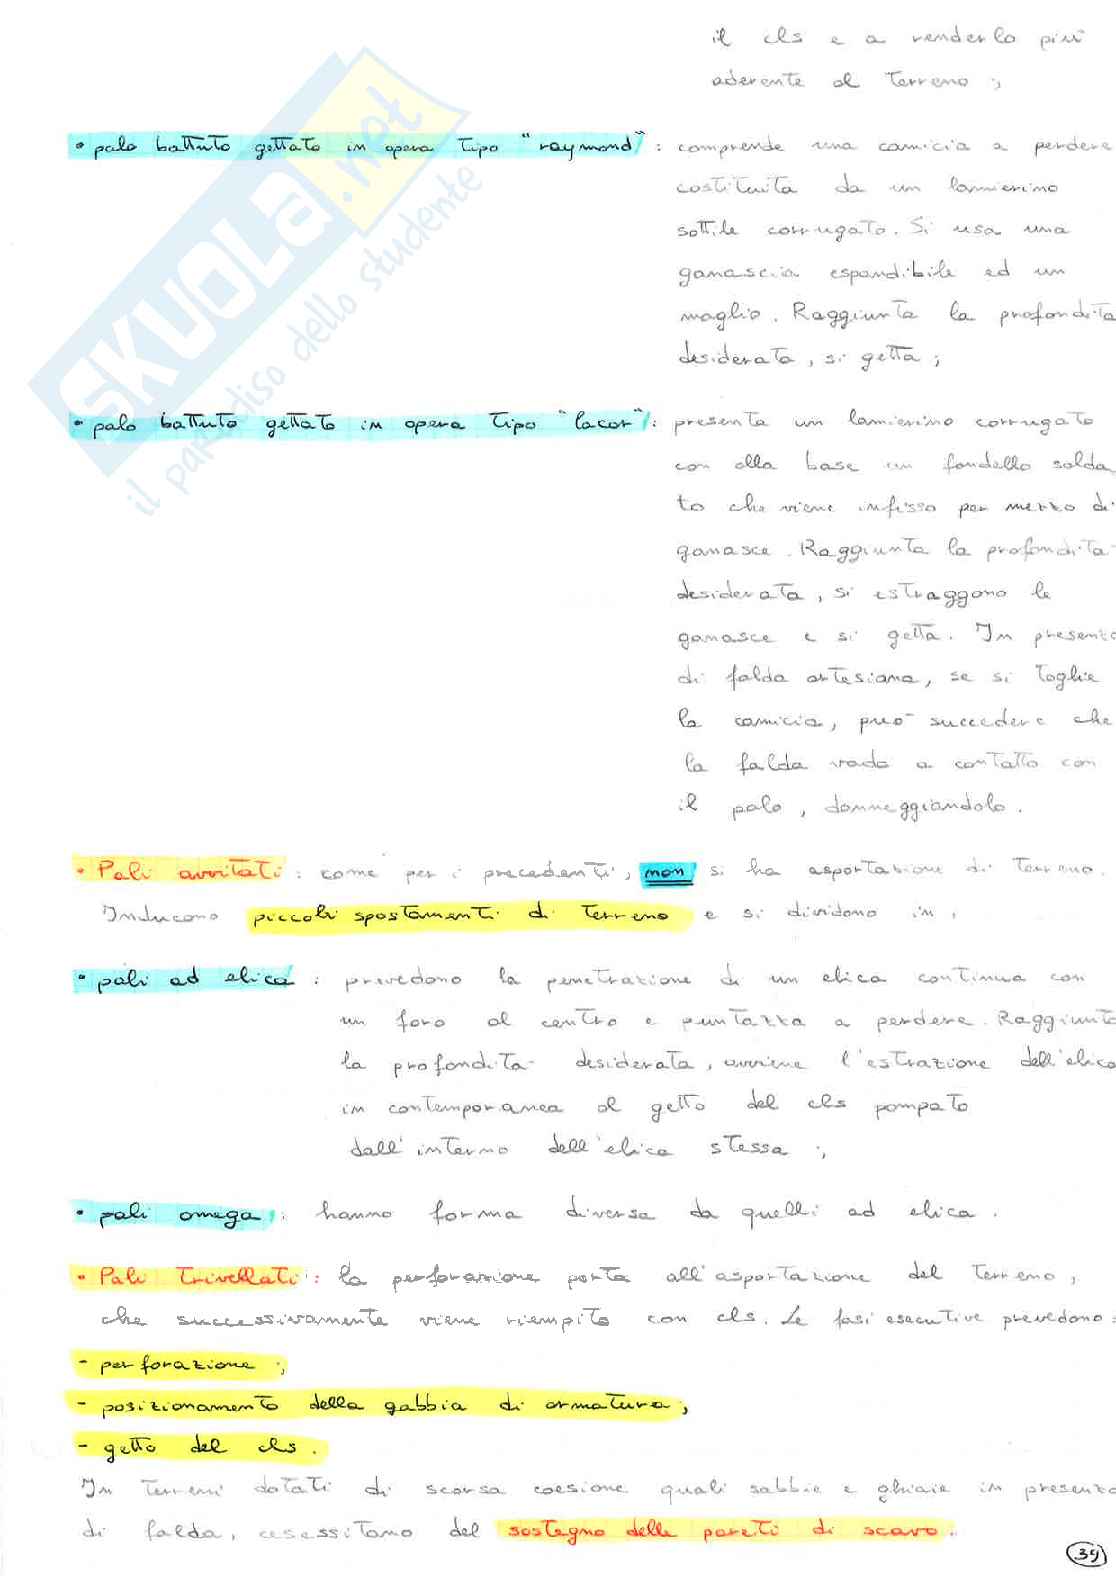 il cls e a renderlo più
aderente al terreno ;
• palo battuto gettato in opera tipo "raymond" : comprende una camicia a perdere
costituita da un lamierino
sottile corrugato. Si usa una
ganascia espandibile ed un
maglio. Raggiunta la profondità
desiderata, si getta ;
• palo battuto gettato in opera tipo "lacor" : presenta un lamierino corrugato
con alla base un fondello salda
to che viene infisso per mezzo di
ganasce. Raggiunta la profondità
desiderata, si estraggono le
ganasce e si getta. In presenza
di falda artesiana, se si toglie
la camicia, può succedere che
la falda vada a contatto con
il palo, danneggiandolo.
• Pali avvitati : come per i precedenti, non si ha asportazione di terreno.
Inducono piccoli spostamenti di terreno e si dividono in :
• pali ad elica : prevedono la penetrazione di un elica continua con
un foro al centro e puntazza a perdere. Raggiunta
la profondità desiderata, avviene l'estrazione dell'elica
in contemporanea al getto del cls pompato
dall'interno dell'elica stessa ;
• pali omega : hanno forma diversa da quelli ad elica.
• Pali trivellati : la perforazione porta all'asportazione del terreno,
che successivamente viene riempito con cls. Le fasi esecutive prevedono :
- perforazione ;
- posizionamento della gabbia di armatura ;
- getto del cls.
In terreni dotati di scarsa coesione quali sabbie e ghiaie in presenza
di falda, cesessitano del sostegno delle pareti di scavo.
39
SKUOLA.net
il paradiso dello studente